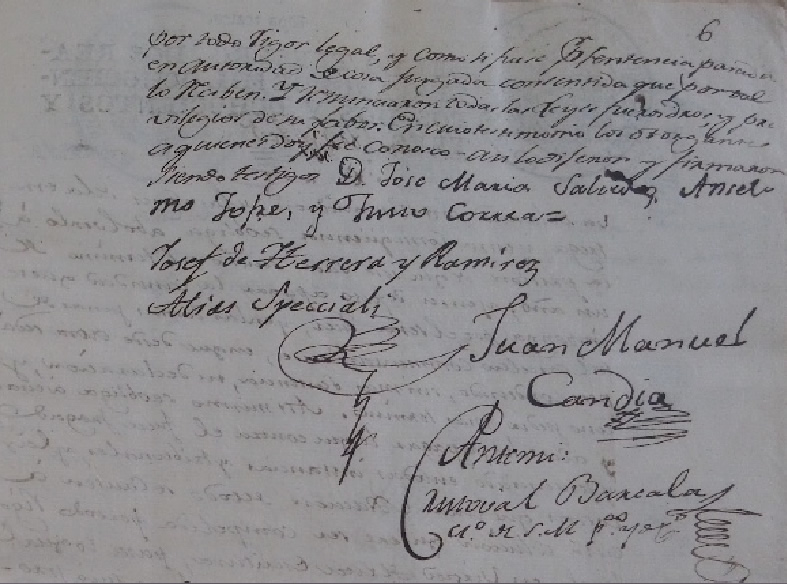 6
por todo rigor legal, y como si fuese pr sentencia pasada
en autoridad de cosa juzgada consentida que por tal
lo reciben. Y renunciaron todas las Leyes fueros dros, y pri
vilegios de su favor. En cuio testimonio los otorgantes
a quienes doy fee conosco asi lo dixeron y firmaron
siendo testigos Dn Jose Maria Anselo
mo Tope, y Correa=
Josef de Herrera y Ramirez
Alias Speciali
Juan Manuel
Candia
Antemi:
Cristoval Barcala
de S. M. pco